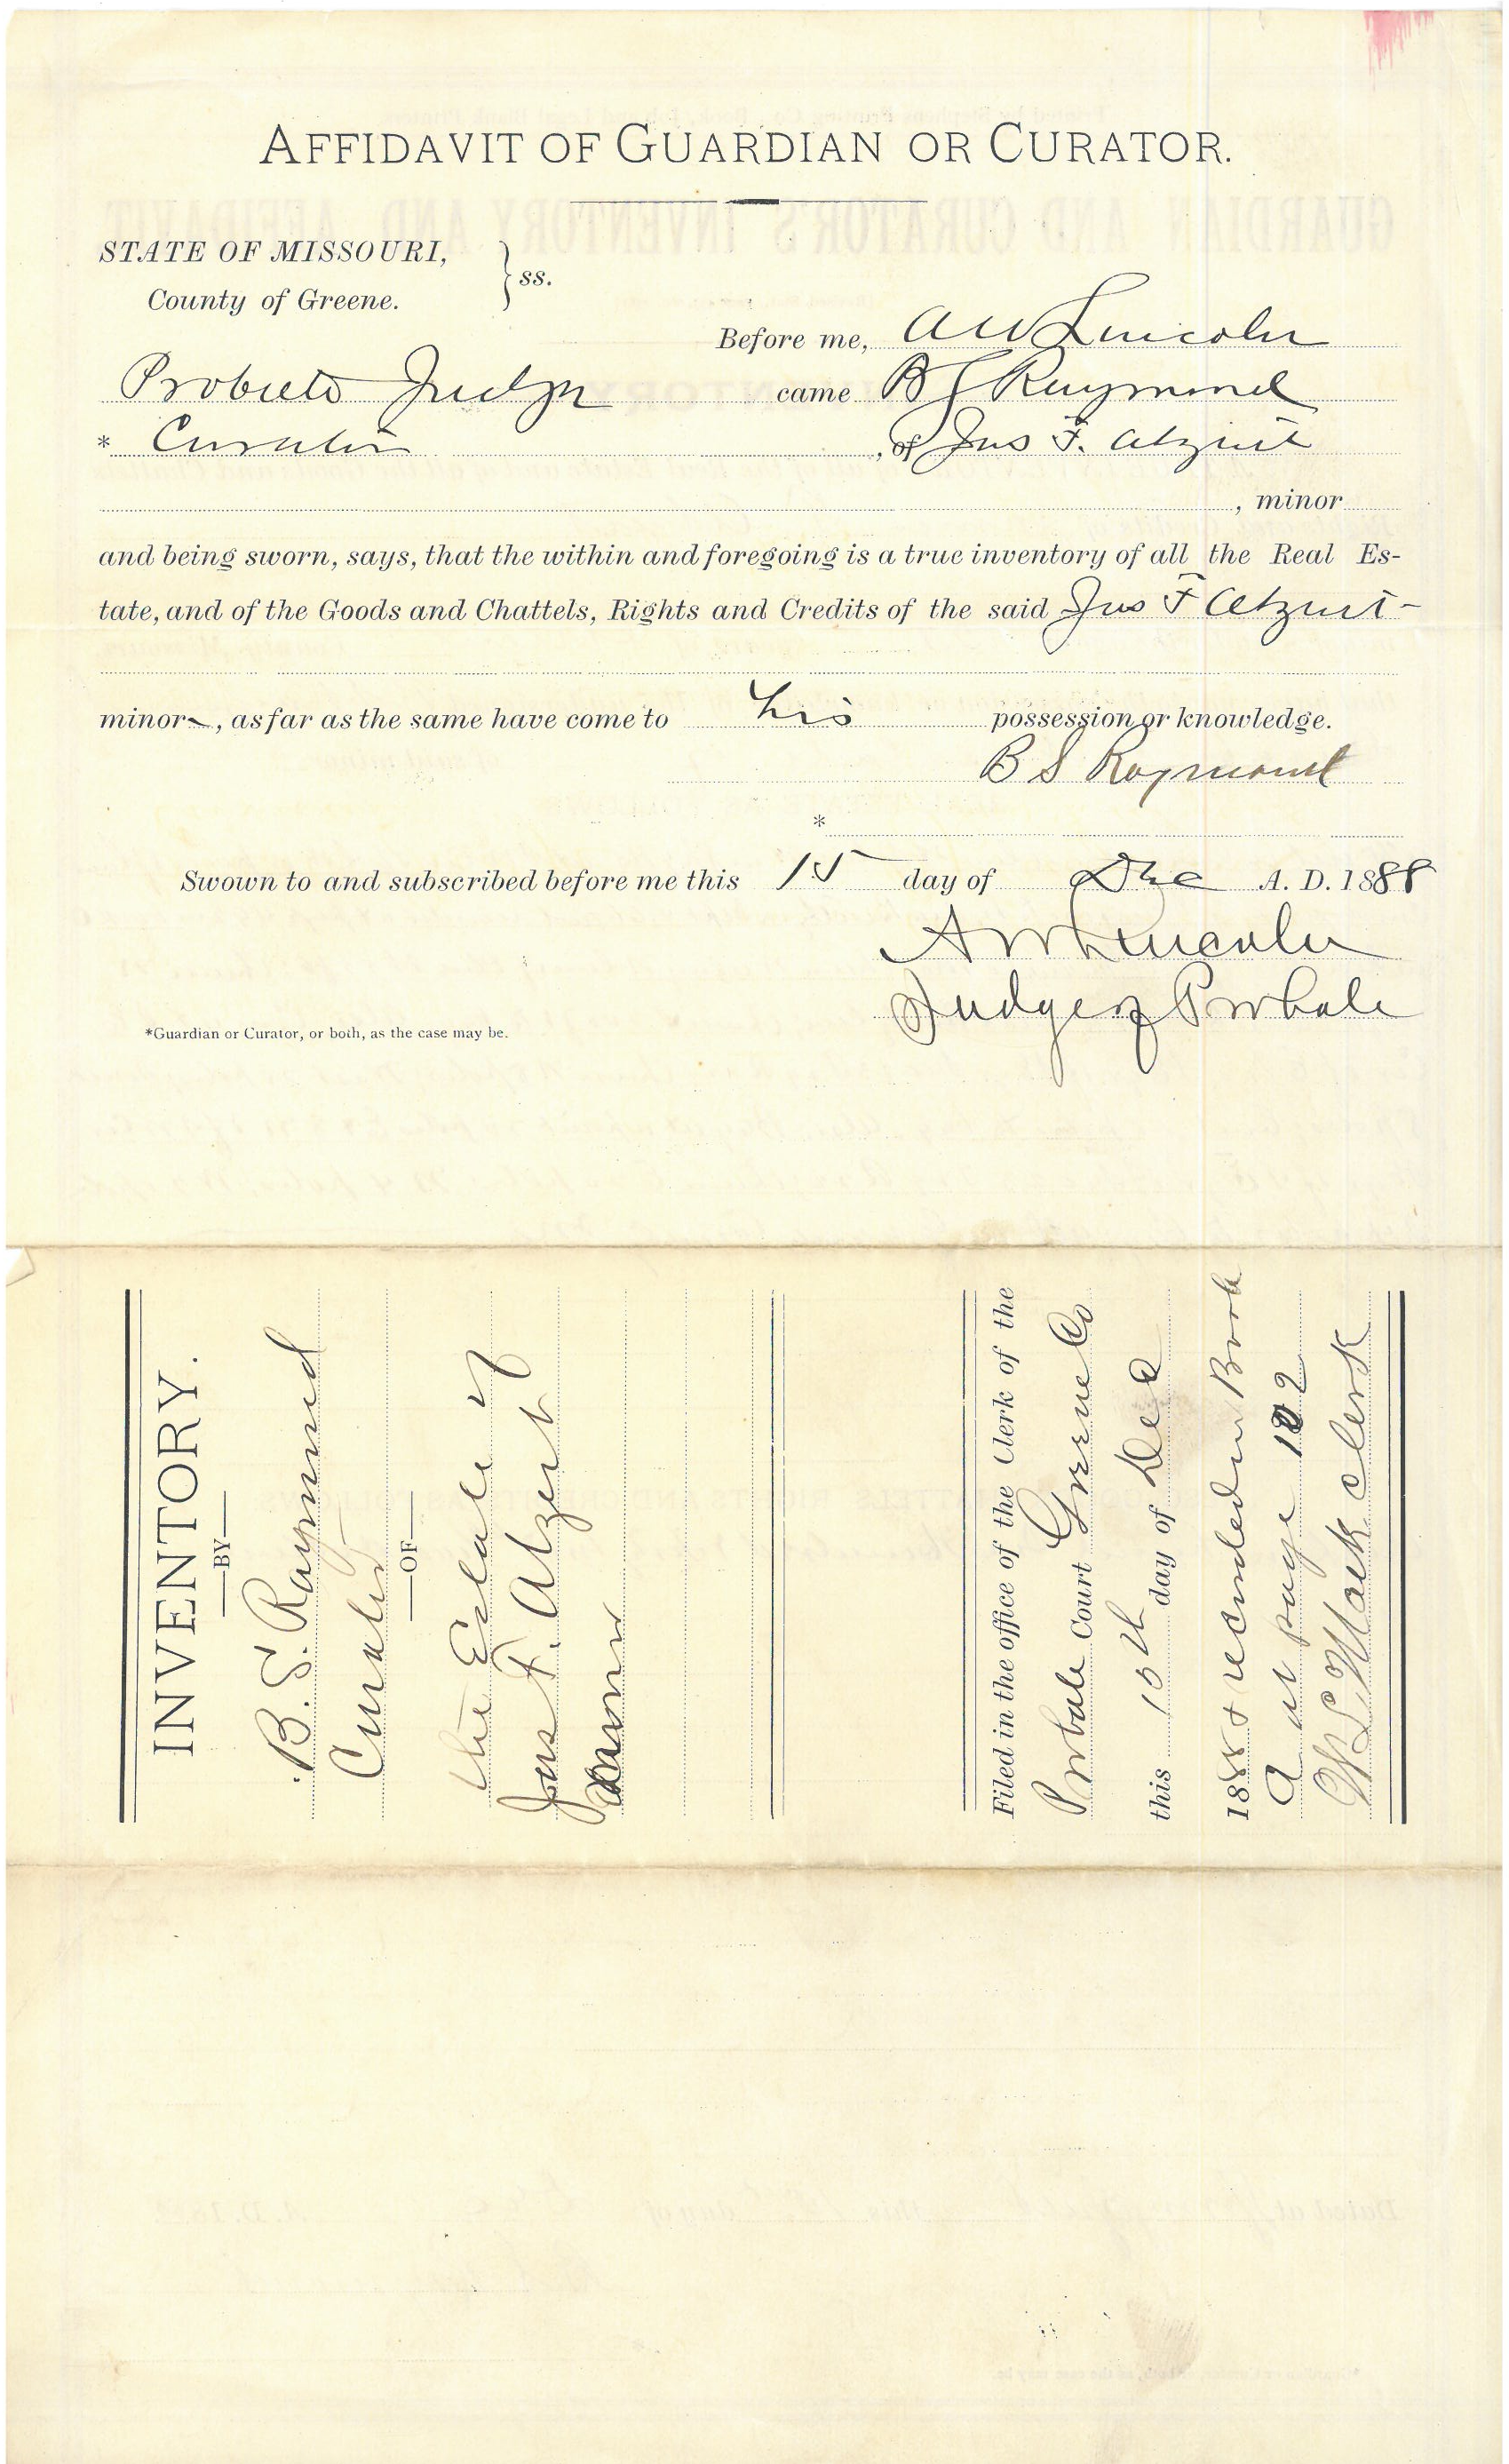 AFFIDAVIT OF GUARDIAN OR CURATOR.
STATE OF MISSOURI,
County of Greene.
} ss.
Before me, A W Lincoln
Probate Judge came B S Raymond
* Curator , of Jas F. Atzert
, minor
and being sworn, says, that the within and foregoing is a true inventory of all the Real Es-
tate, and of the Goods and Chattels, Rights and Credits of the said Jas F Atzert
minor , as far as the same have come to his possession or knowledge.
B S Raymond
*
Swown to and subscribed before me this 15 day of Dec A. D. 1888
A W Lincoln
Judge of Probate
*Guardian or Curator, or both, as the case may be.
INVENTORY.
—BY—
B. S. Raymond
Curator
—OF—
the Estate of
Jas F. Atzert
minor
Filed in the office of the Clerk of the
Probate Court Greene Co
this 15th day of Dec
1888 & recorded in Book
A at page 102
W L Mack Clerk